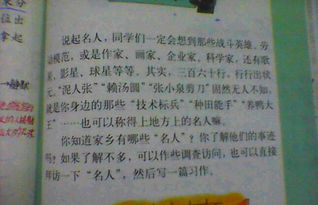 说起名人，同学们一定会想到那些战斗英雄、劳
动模范，或是作家、画家、企业家、科学家，还有歌
星，影星、球星等等。其实，三百六十行，行行出状
元，“泥人张”“赖汤圆”“张小泉剪刀”固然无人不知，
就是你身边的那些“技术标兵”“种田能手”“养鸭大
王”……也可以称得上地方上的名人嘛。
你知道家乡有哪些“名人”？你了解他们的事迹
吗？如果了解不多，可以作些调查访问，也可以直接
拜访一下“名人”，然后写一篇习作。
位出
拿起